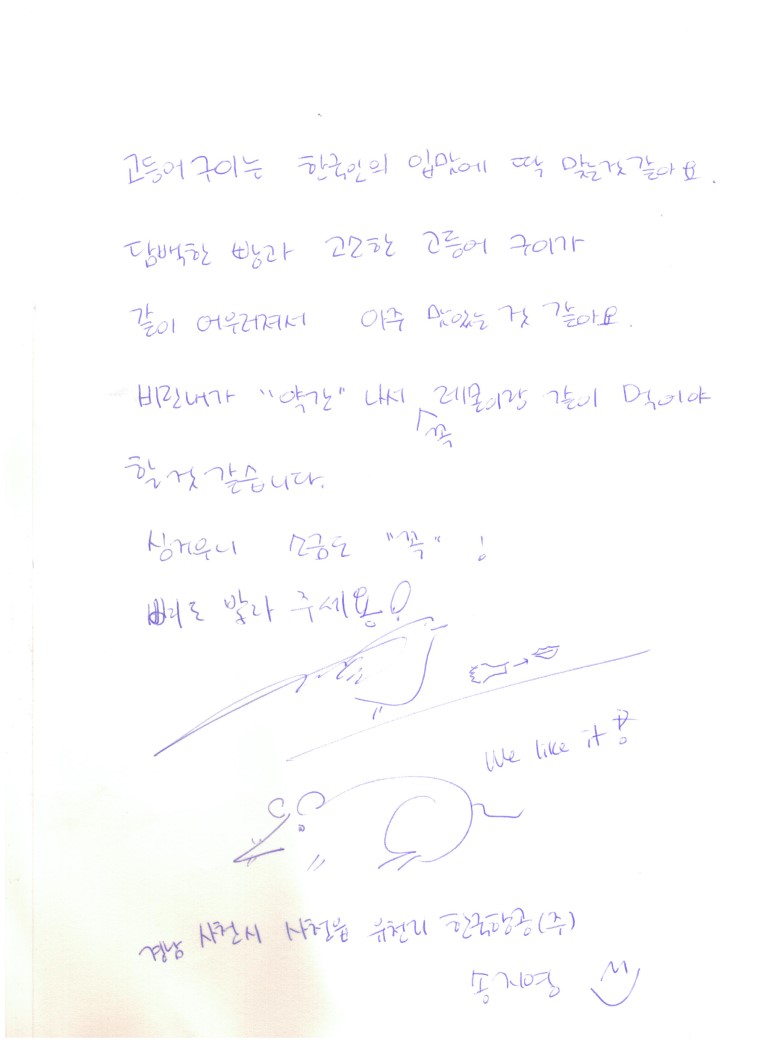 고등어구이는 한국인의 입맛에 딱 맞는것 같아요.
담백한 빵과 고소한 고등어 구이가
같이 어우러져서 아주 맛있는 것 같아요.
비린내가 "약간" 나서 꼭 레몬이랑 같이 먹어야
할 것 같습니다.
싱거우니 소금도 "꼭" !
뼈도 발라 주세용!
We like it!
경남 사천시 사천읍 유천리 한국항공(주)
송지영